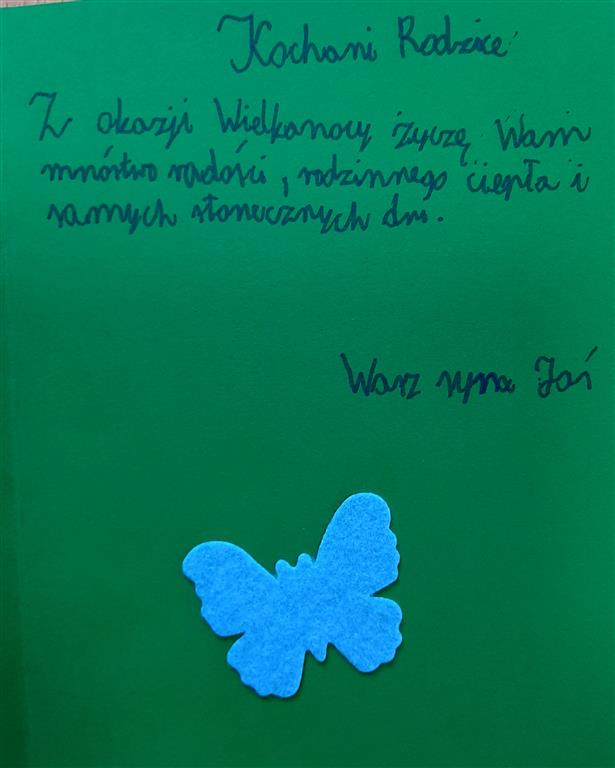 Kochani Rodzice
Z okazji Wielkanocy życzę Wam
mnóstwo radości, rodzinnego ciepła i
samych słonecznych dni.
Warz syna Jaś